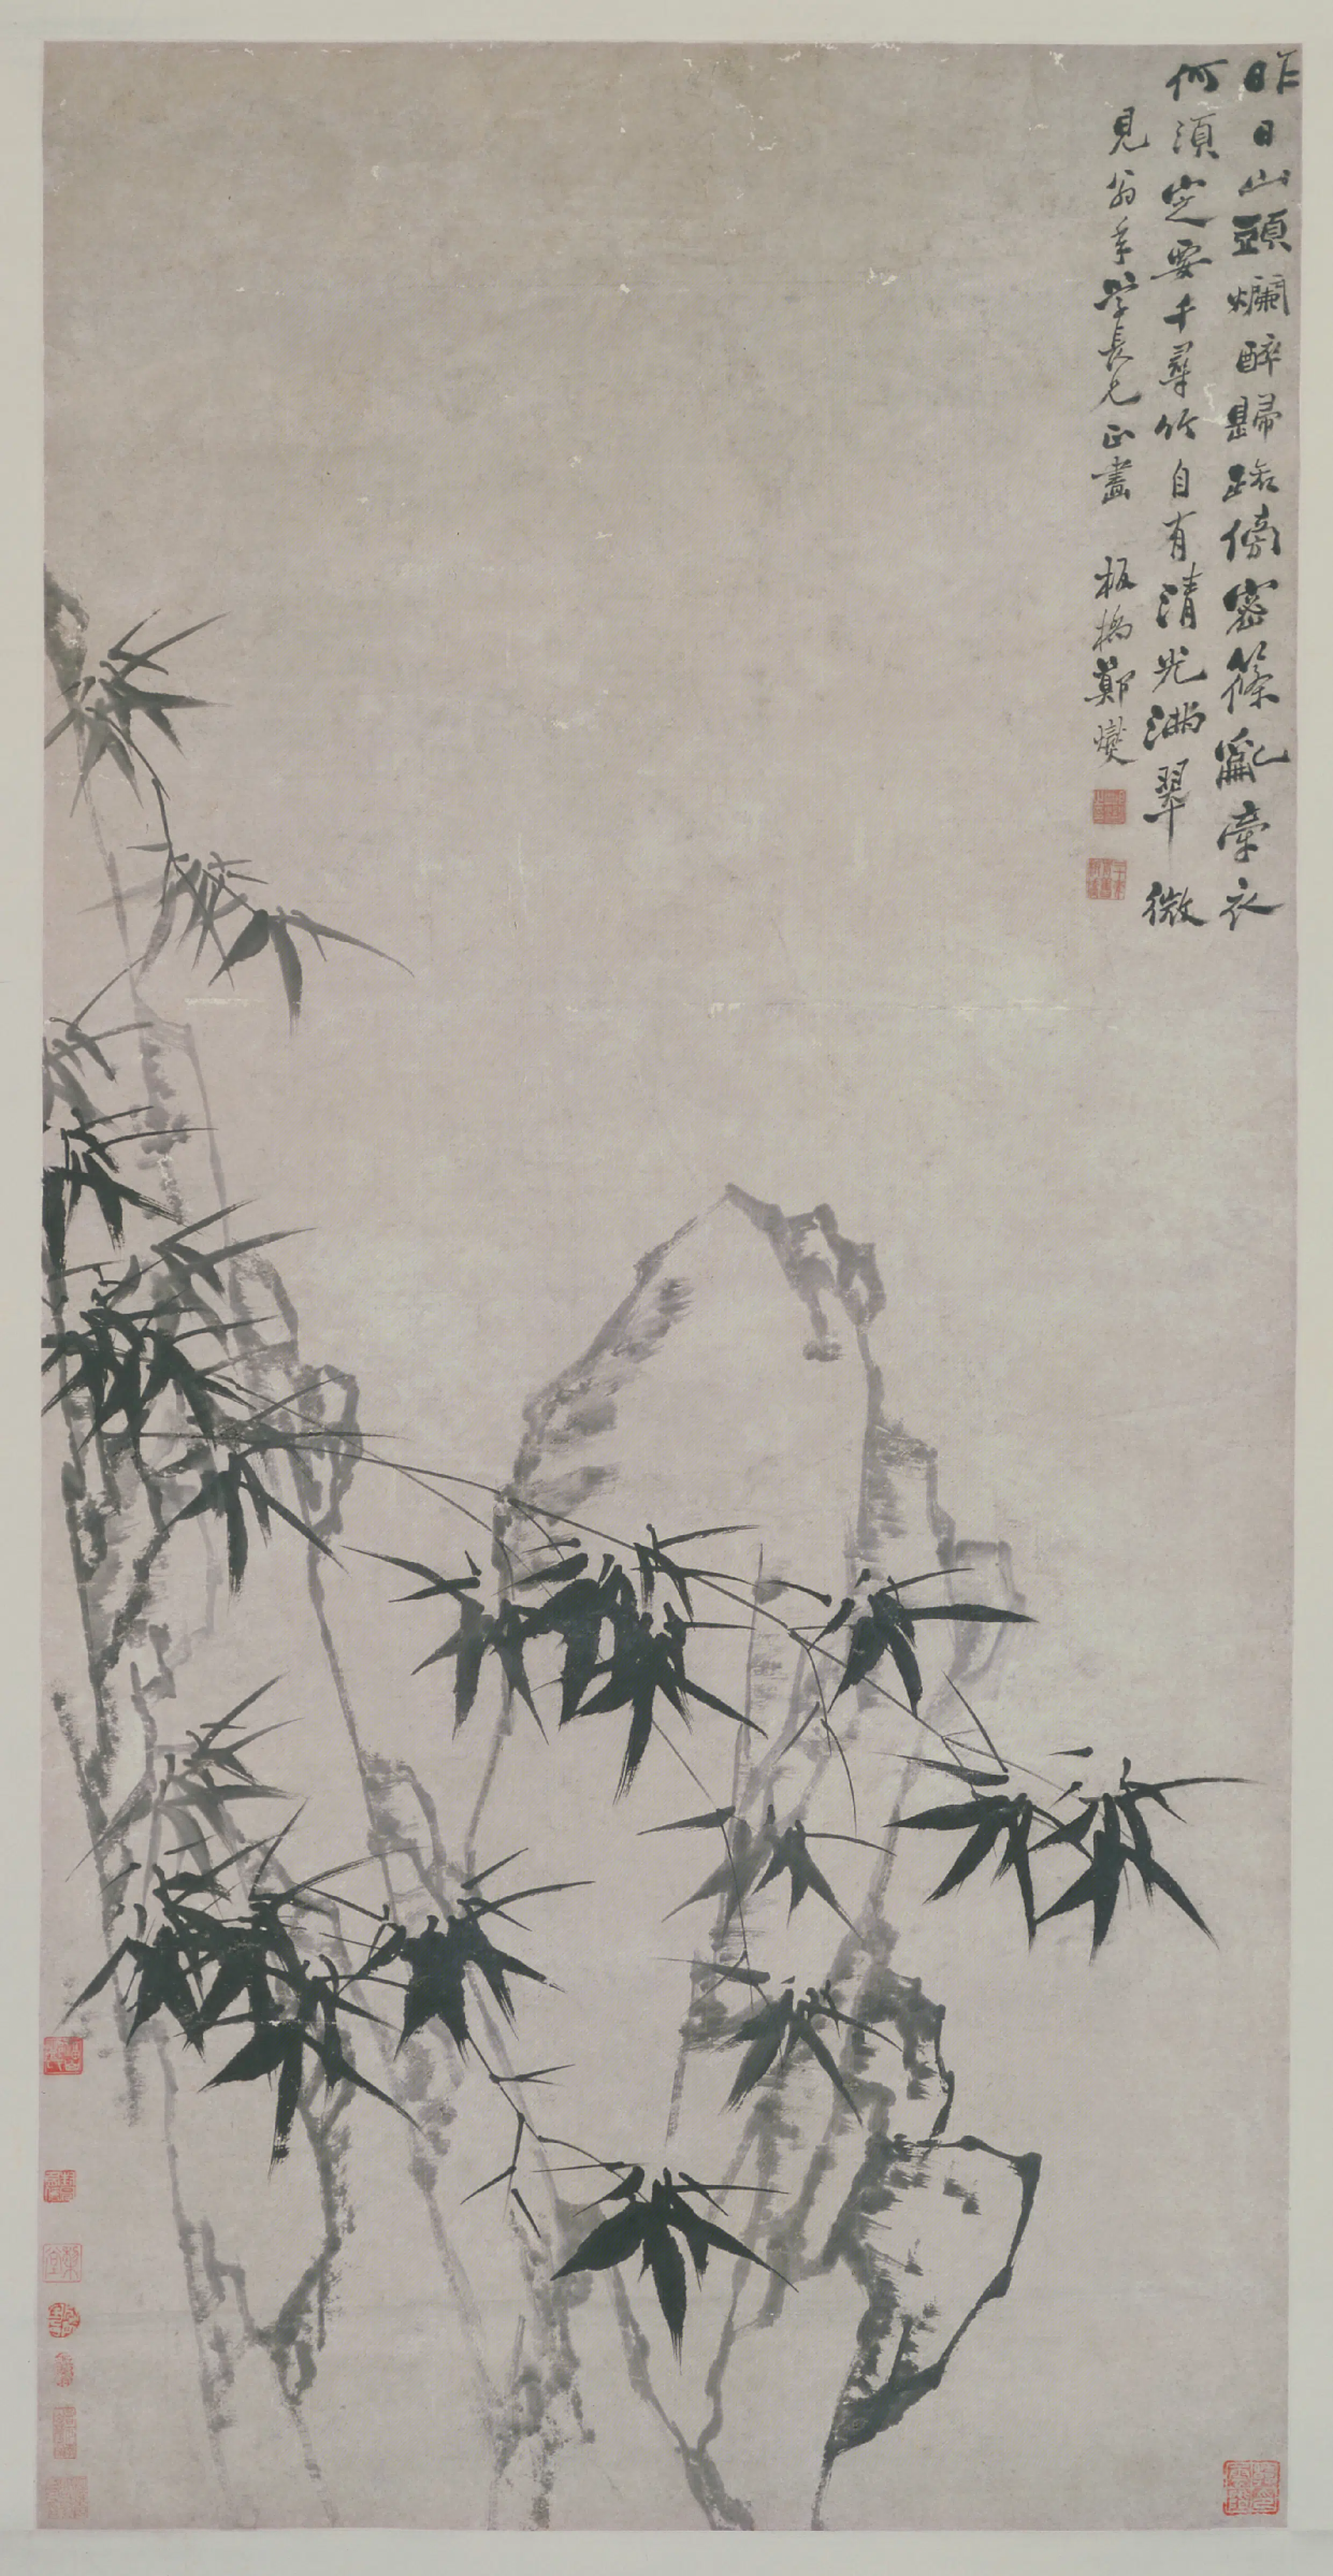 昨日山頭爛醉歸路傍密篠亂牽衣
何須定要千尋竹自有清光滿翠微
見翁年學長兄正畫　板橋鄭燮